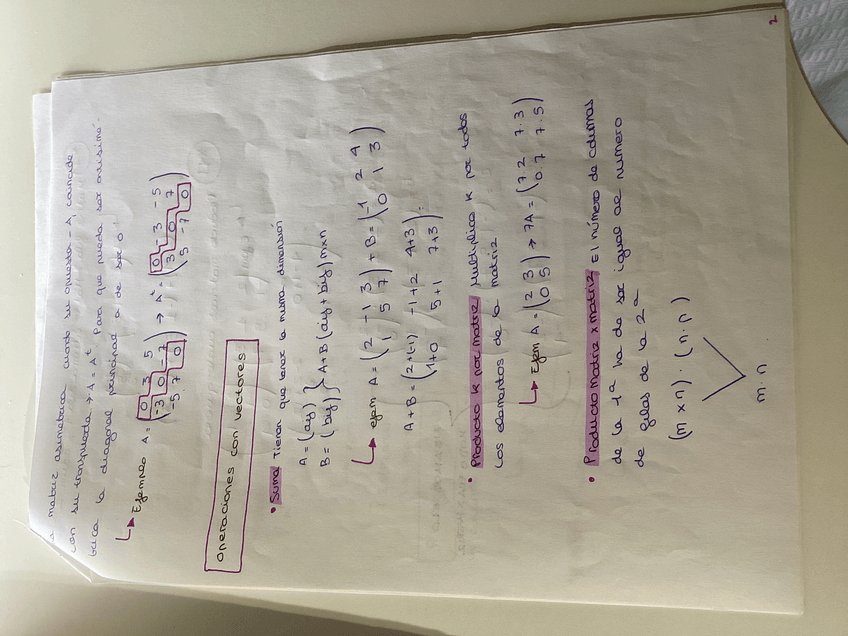 matriz asimetrica cuando su opuesta - A, coincide
con su transpuesta → A = Aᵗ. Para que pueda ser antisimé-
trica la diagonal principal a de ser 0
↳ Ejemplo A = (0 3 5 / -3 0 -7 / -5 7 0) → Aᵗ = (0 -3 -5 / 3 0 7 / 5 -7 0)
operaciones con vectores
• Suma Tienen que tener la misma dimensión
A = (aij)
B = (bij) } A+B (aij + bij) m×n
↳ ejem A = (2 -1 3 / 1 5 7) + B = (-1 2 4 / 0 1 3)
A+B = (2+(-1) -1+2 4+3 / 1+0 5+1 7+3)
• Producto K por matriz Multiplico K por todos
los elementos de la matriz
↳ Ejem A = (2 3 / 0 5) → 7A = (7·2 7·3 / 0·7 7·5)
• Producto matriz x matriz El número de columnas
de la 1ª ha de ser igual al numero
de filas de la 2ª
(m × n) · (n · n)
m · n
2